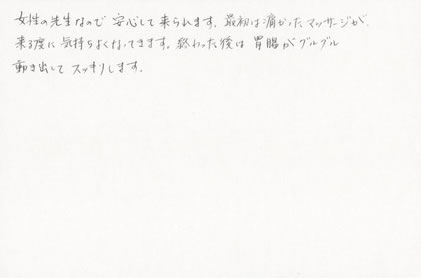 女性の先生なので 安心して来られます。最初は痛かったマッサージが、
来る度に 気持ちよくなってきます。終わった後は 胃腸がグルグル
動き出して スッキリします。